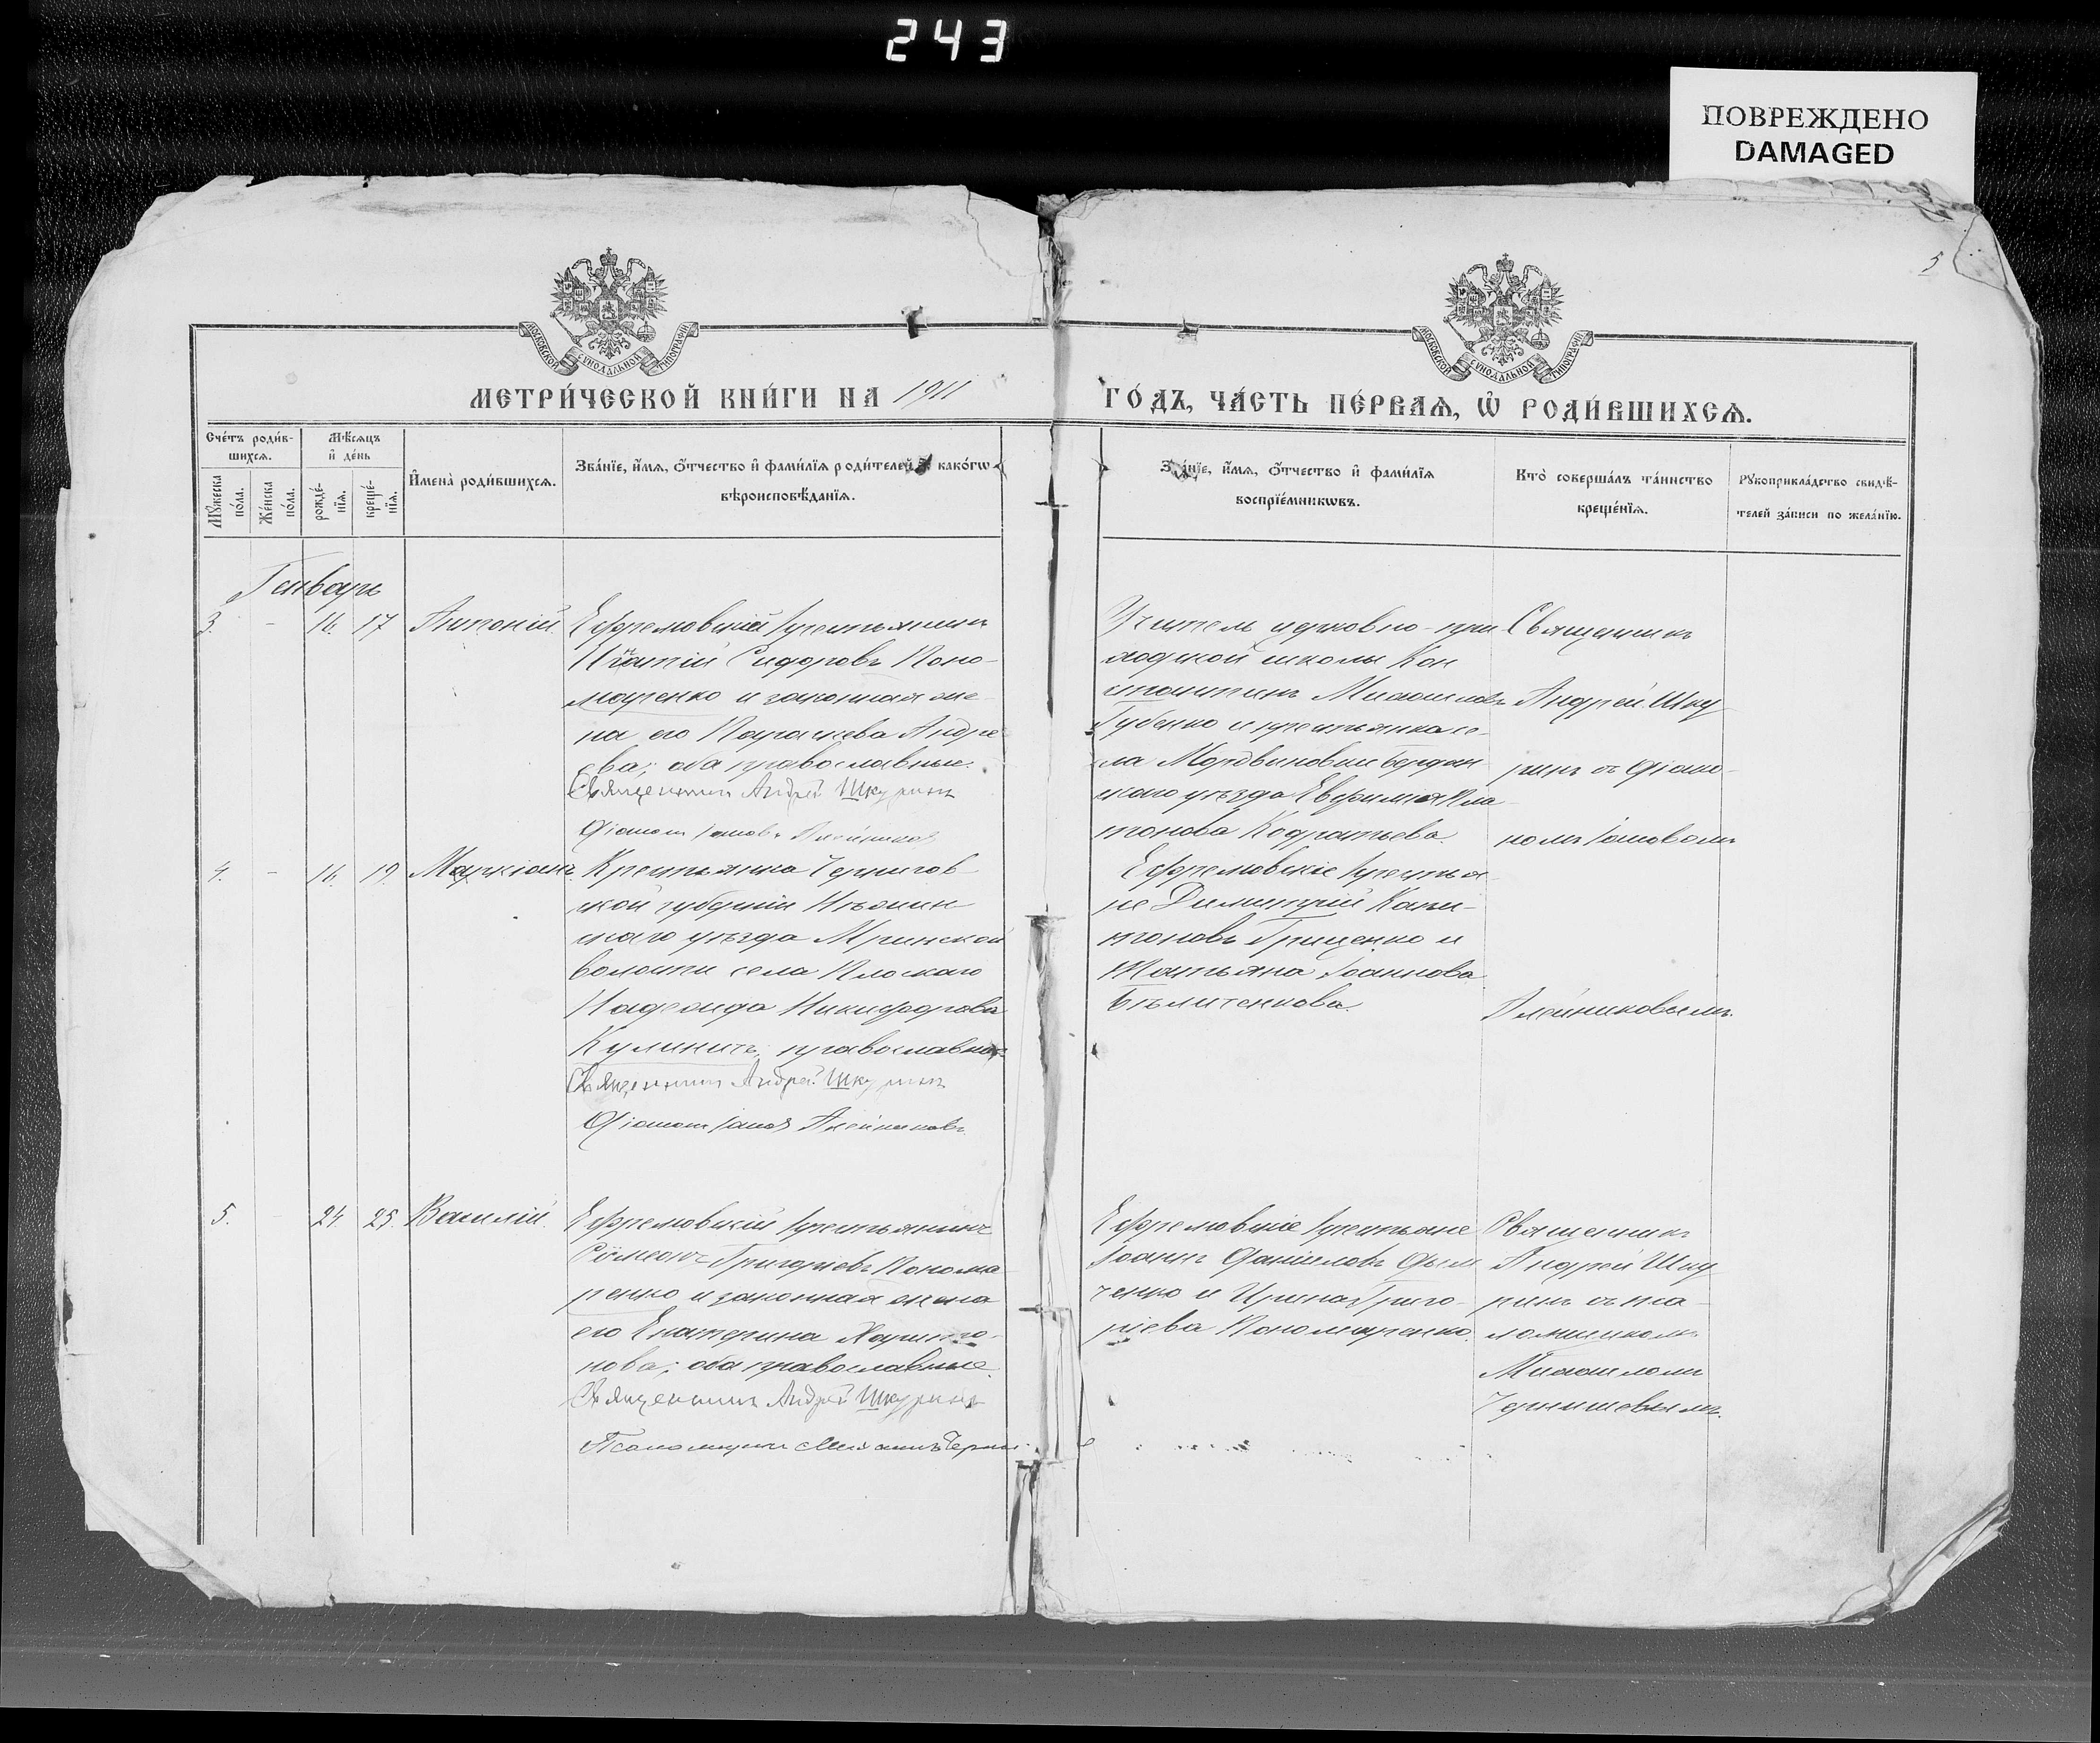 243
ПОВРЕЖДЕНО
DAMAGED
5
МОСКОВСКОЙ СѴНОДАЛЬНОЙ ТИПОГРАФІИ
МОСКОВСКОЙ СѴНОДАЛЬНОЙ ТИПОГРАФІИ
МЕТРИ́ЧЕСКОЙ КНИ́ГИ НА 1911
ГО́ДЪ, ЧА́СТЬ ПЕ́РВАѦ, Ѽ РОДИ́ВШИХСѦ.
Сче́тъ роди́в-
шихсѧ.
Мѣ́сѧцъ
и҆ де́нь
Мꙋ́жеска
по́ла.
Же́нска
по́ла.
рожде́-
нїѧ.
креще́-
нїѧ.
И҆мена̀ роди́вшихсѧ.
Зва́нїе, и҆́мѧ, ѻ҆́тчество и҆ фами́лїѧ роди́телей и҆ како́гѡ
вѣроисповѣ́данїѧ.
Зва́нїе, и҆́мѧ, ѻ҆́тчество и҆ фами́лїѧ
воспрїе́мникѡвъ.
Кто̀ соверша́лъ та́инство
креще́нїѧ.
Рꙋкоприкла́дство свидѣ́-
телей за́писи по жела́нїю.
Генварь
3. - 16. 17 Антоній
Ефремовскій крестьянинъ
Игнатій Сидоровъ Поно-
маренко и законная же-
на его Параскева Андре-
ева; оба православные.
Священникъ Андрей Шкуринъ
Діаконъ Іаковъ Алейниковъ
Учитель церковно-при-
ходской школы Кон
стантинъ Михаиловъ
Губенко и крестьянка се-
ла Мордвиновки Бердян
скаго уѣзда Евфимія Пла
тонова Кодратьева.
Священникъ
Андрей Шку
ринъ съ Діако-
номъ Іаковомъ
4. - 16. 19. Маркіанъ.
Крестьянка Чернигов
ской губерніи Нѣжин
скаго уѣзда Мринской
волости села Плоскаго
Надежда Никифорова
Кулиничъ; православная
Священникъ Андрей Шкуринъ
Діаконъ Іаковъ Алейниковъ
Ефремовскіе крестья-
не Димитрій Капи-
тоновъ Гриценко и
Татьяна Іоаннова
Бѣличенкова.
Алейниковымъ.
5. - 24. 25. Василій.
Ефремовскій крестьянинъ
Сѵмеонъ Григоріевъ Понома
ренко и законная жена
его Екатерина Харито-
нова; оба православные.
Священникъ Андрей Шкуринъ
Псаломщикъ Михаилъ Черны
Ефремовскіе крестьяне
Іоаннъ Даніиловъ Дьям
ченко и Ирина Григо-
ріева Пономаренко.
Священникъ
Андрей Шку
ринъ съ пса-
ломщикомъ
Михаиломъ
Чернышевымъ.